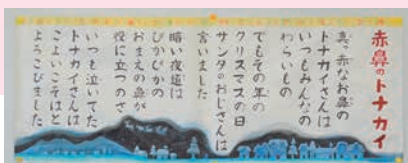 赤鼻のトナカイ
真っ赤なお鼻の
トナカイさんは
いつもみんなの
わらいもの
でもその年の
クリスマスの日
サンタのおじさんは
言いました
暗い夜道は
ぴかぴかの
おまえの鼻が
役に立つのさ
いつも泣いてた
トナカイさんは
こよいこそはと
よろこびました